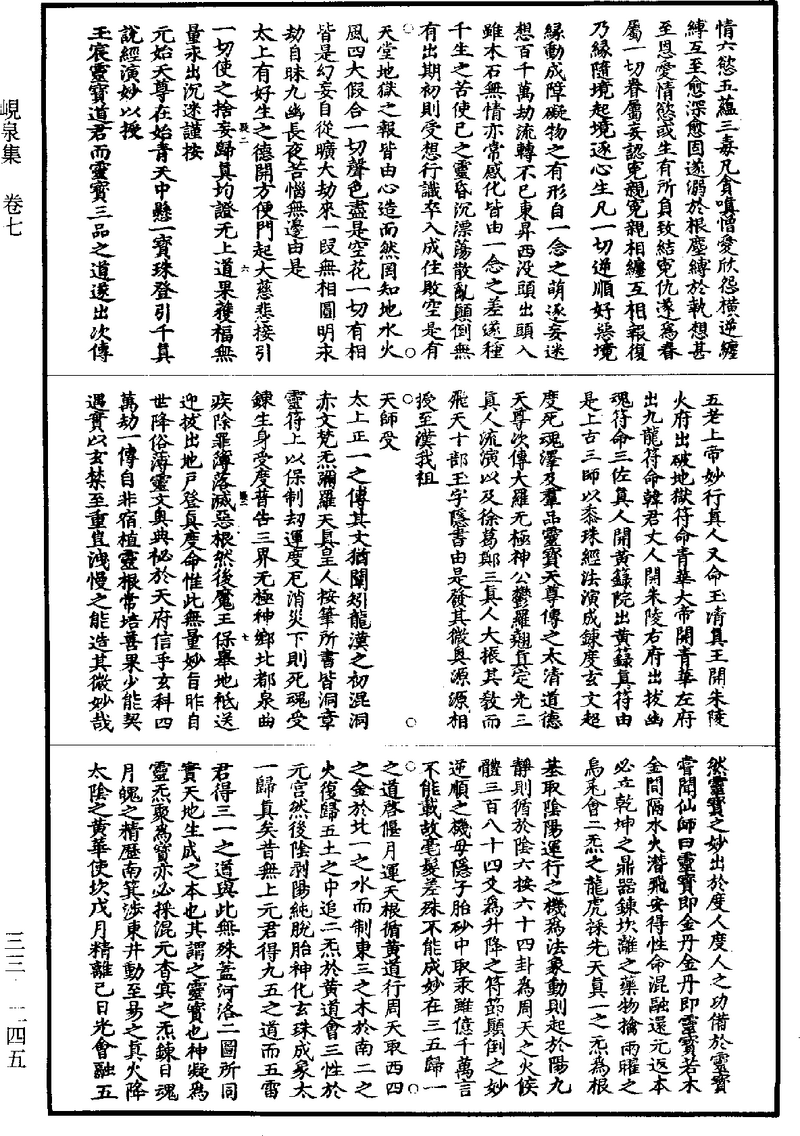 情六慾五蘊三毒凡貪嗔憎愛欣怨橫逆纏
縛互至愈深愈固遂溺於根塵縛於執想甚
至恩愛情慾或生有所負致結冤仇遂為眷
屬一切眷屬妄認冤親冤親相纏互相報復
乃緣隨境起境逐心生凡一切逆順好惡境
緣動成障礙物之有形自一念之萌逐妄迷
想百千萬劫流轉不已東昇西没頭出頭入
雖木石無情亦常感化皆由一念之差遂種
千生之苦使己之靈昏沉漂蕩散亂顛倒無
有出期初則受想行識卒入成住敗空是有
天堂地獄之報皆由心造而然罔知地水火
風四大假合一切聲色盡是空花一切有相
皆是幻妄自從曠大劫來一段無相圓明求
劫自昧九幽長夜苦惱無邊由是
太上有好生之德開方便門起大慈悲接引
一切使之捨妄歸真均證无上道果獲福無
量永出沉迷謹按
元始天尊在始青天中懸一寶珠登引千真
說經演妙以授
玉宸靈寶道君而靈寶三品之道遂出次傳
五老上帝妙行真人又命玉清真王開朱陵
火府出破地獄符命青華大帝開青華左府
出九龍符命韓君丈人開朱陵右府出拔幽
魂符命三佐真人開黃籙院出黃籙真符由
是上古三師以黍珠經法演成鍊度玄文超
度死魂澤及羣品靈寶天尊傳之太清道德
天尊次傳大羅无極神公鬱羅翹真定光三
真人流演以及徐葛鄭三真人大振其教而
飛天十部玉字隱書由是發其微奧源源相
授至漢我祖
天師受
太上正一之傳其文猶闡矧龍漢之初混洞
赤文梵炁彌羅天真皇人按筆所書皆洞章
靈符上以保制劫運度厄消災下則死魂受
鍊生身受度普告三界无極神鄉北都泉曲
疾除罪簿落滅惡根然後魔王保舉地祇送
迎拔出地戶登真度命惟此無量妙旨昨自
世降俗薄靈文奥典祕於天府信乎玄科四
萬劫一傳自非宿植靈根常培善果少能契
遇實以玄禁至重豈洩慢之能造其微妙哉
然靈寶之妙出於度人度人之功備於靈寶
嘗聞仙師曰靈寶即金丹金丹即靈寶若木
金間隔水火潛飛安得性命混融還元返本
必立乾坤之鼎器鍊坎離之藥物擒雨曜之
烏兎會二炁之龍虎採先天真一之炁為根
基取陰陽運行之機為法象動則起於陽九
靜則循於陰六按六十四卦為周天之火候
體三百八十四爻為升降之符節顛倒之妙
逆順之機母隱子胎砂中取汞雖億千萬言
不能載故毫髮差殊不能成妙在三五歸一
之道啓偃月運天根循黃道行周天取西四
之金於北一之水而制東三之木於南二之
火復歸五土之中追二炁於黃道會三性於
元宮然後陰剥陽純脫胎神化玄珠成象太
一歸真矣昔無上元君得九五之道而五雷
君得三一之道與此無殊蓋河洛二圖所同
實天地生成之本也其謂之靈寶也神凝為
靈炁聚為寶亦必採混元杳冥之炁鍊日魂
月魄之精歷南箕涉東井動至昜之真火降
太陰之黃華使坎戊月精離己日光會融五
峴泉集　卷七
三三　二四五